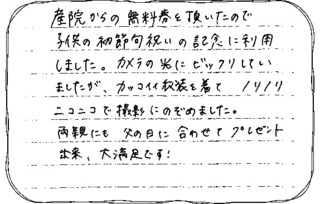 産院からの無料券を頂いたので
子供の初節句祝いの記念に利用
しました。カメラの光にビックリしてい
ましたが、カッコイイ衣装を着て ノリノリ
ニコニコで撮影にのぞめました。
両親にも 父の日に合わせて プレゼント
出来、大満足です!